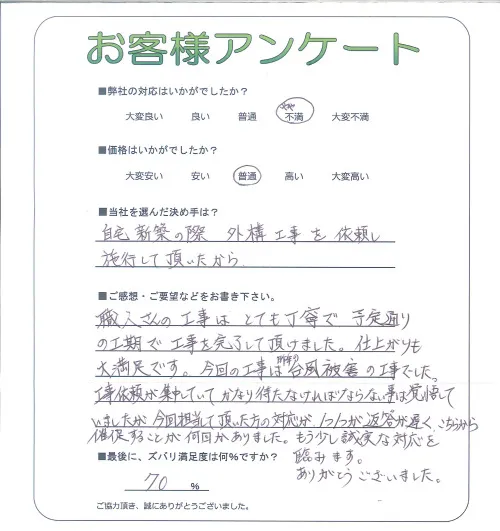 お客様アンケート
■弊社の対応はいかがでしたか？
大変良い 良い 普通 やや 不満 大変不満
■価格はいかがでしたか？
大変安い 安い 普通 高い 大変高い
■当社を選んだ決め手は？
自宅新築の際 外構工事を依頼し
施行して頂いたから
■ご感想・ご要望などをお書き下さい。
職人さんの工事はとても丁寧で 予定通り
の工期で工事を完了して頂けました。仕上がりも
大満足です。今回の工事は 台風被害の工事でした。
工事依頼が集中していてかなり待たなければならない事は覚悟して
いましたが 今回担当して頂いた方の対応が 1つ1つが返答が遅く、こちらから
催促することが何回かありました。もう少し誠実な対応を
臨みます。
ありがとうございました。
■最後に、ズバリ満足度は何%ですか？
70 %
ご協力頂き、誠にありがとうございました。